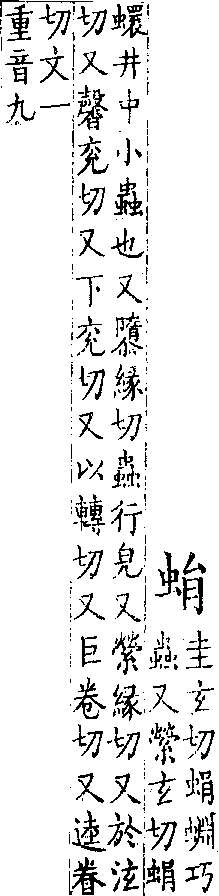 蜎
圭玄切蜎蜵巧
蟲又縈玄切蜎
蠉井中小蟲也又隳緣切蟲行皃又縈緣切又於泫
切又馨兖切又下兖切又以轉切又巨卷切又逵眷
切文一
重音九